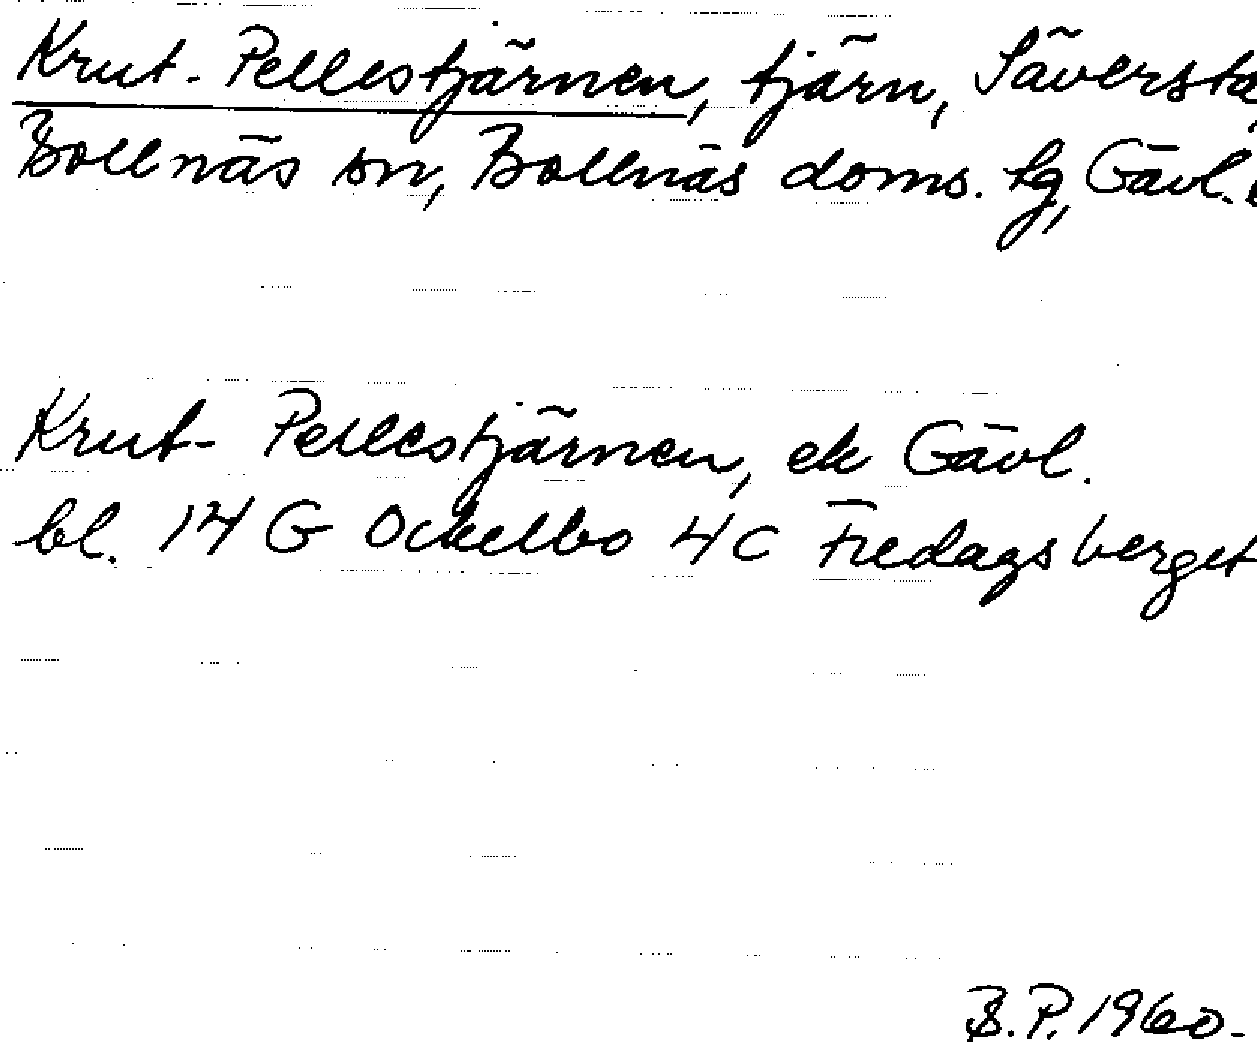 Krut-Pellestjärnen, tjärn, Säversta,
Bollnäs sn, Bollnäs doms. tg, Gävl.
Krut-Pellestjärnen, ek Gävl.
bl. 14 G Ockelbo 4 C Fredagsberget
B.P. 1960.